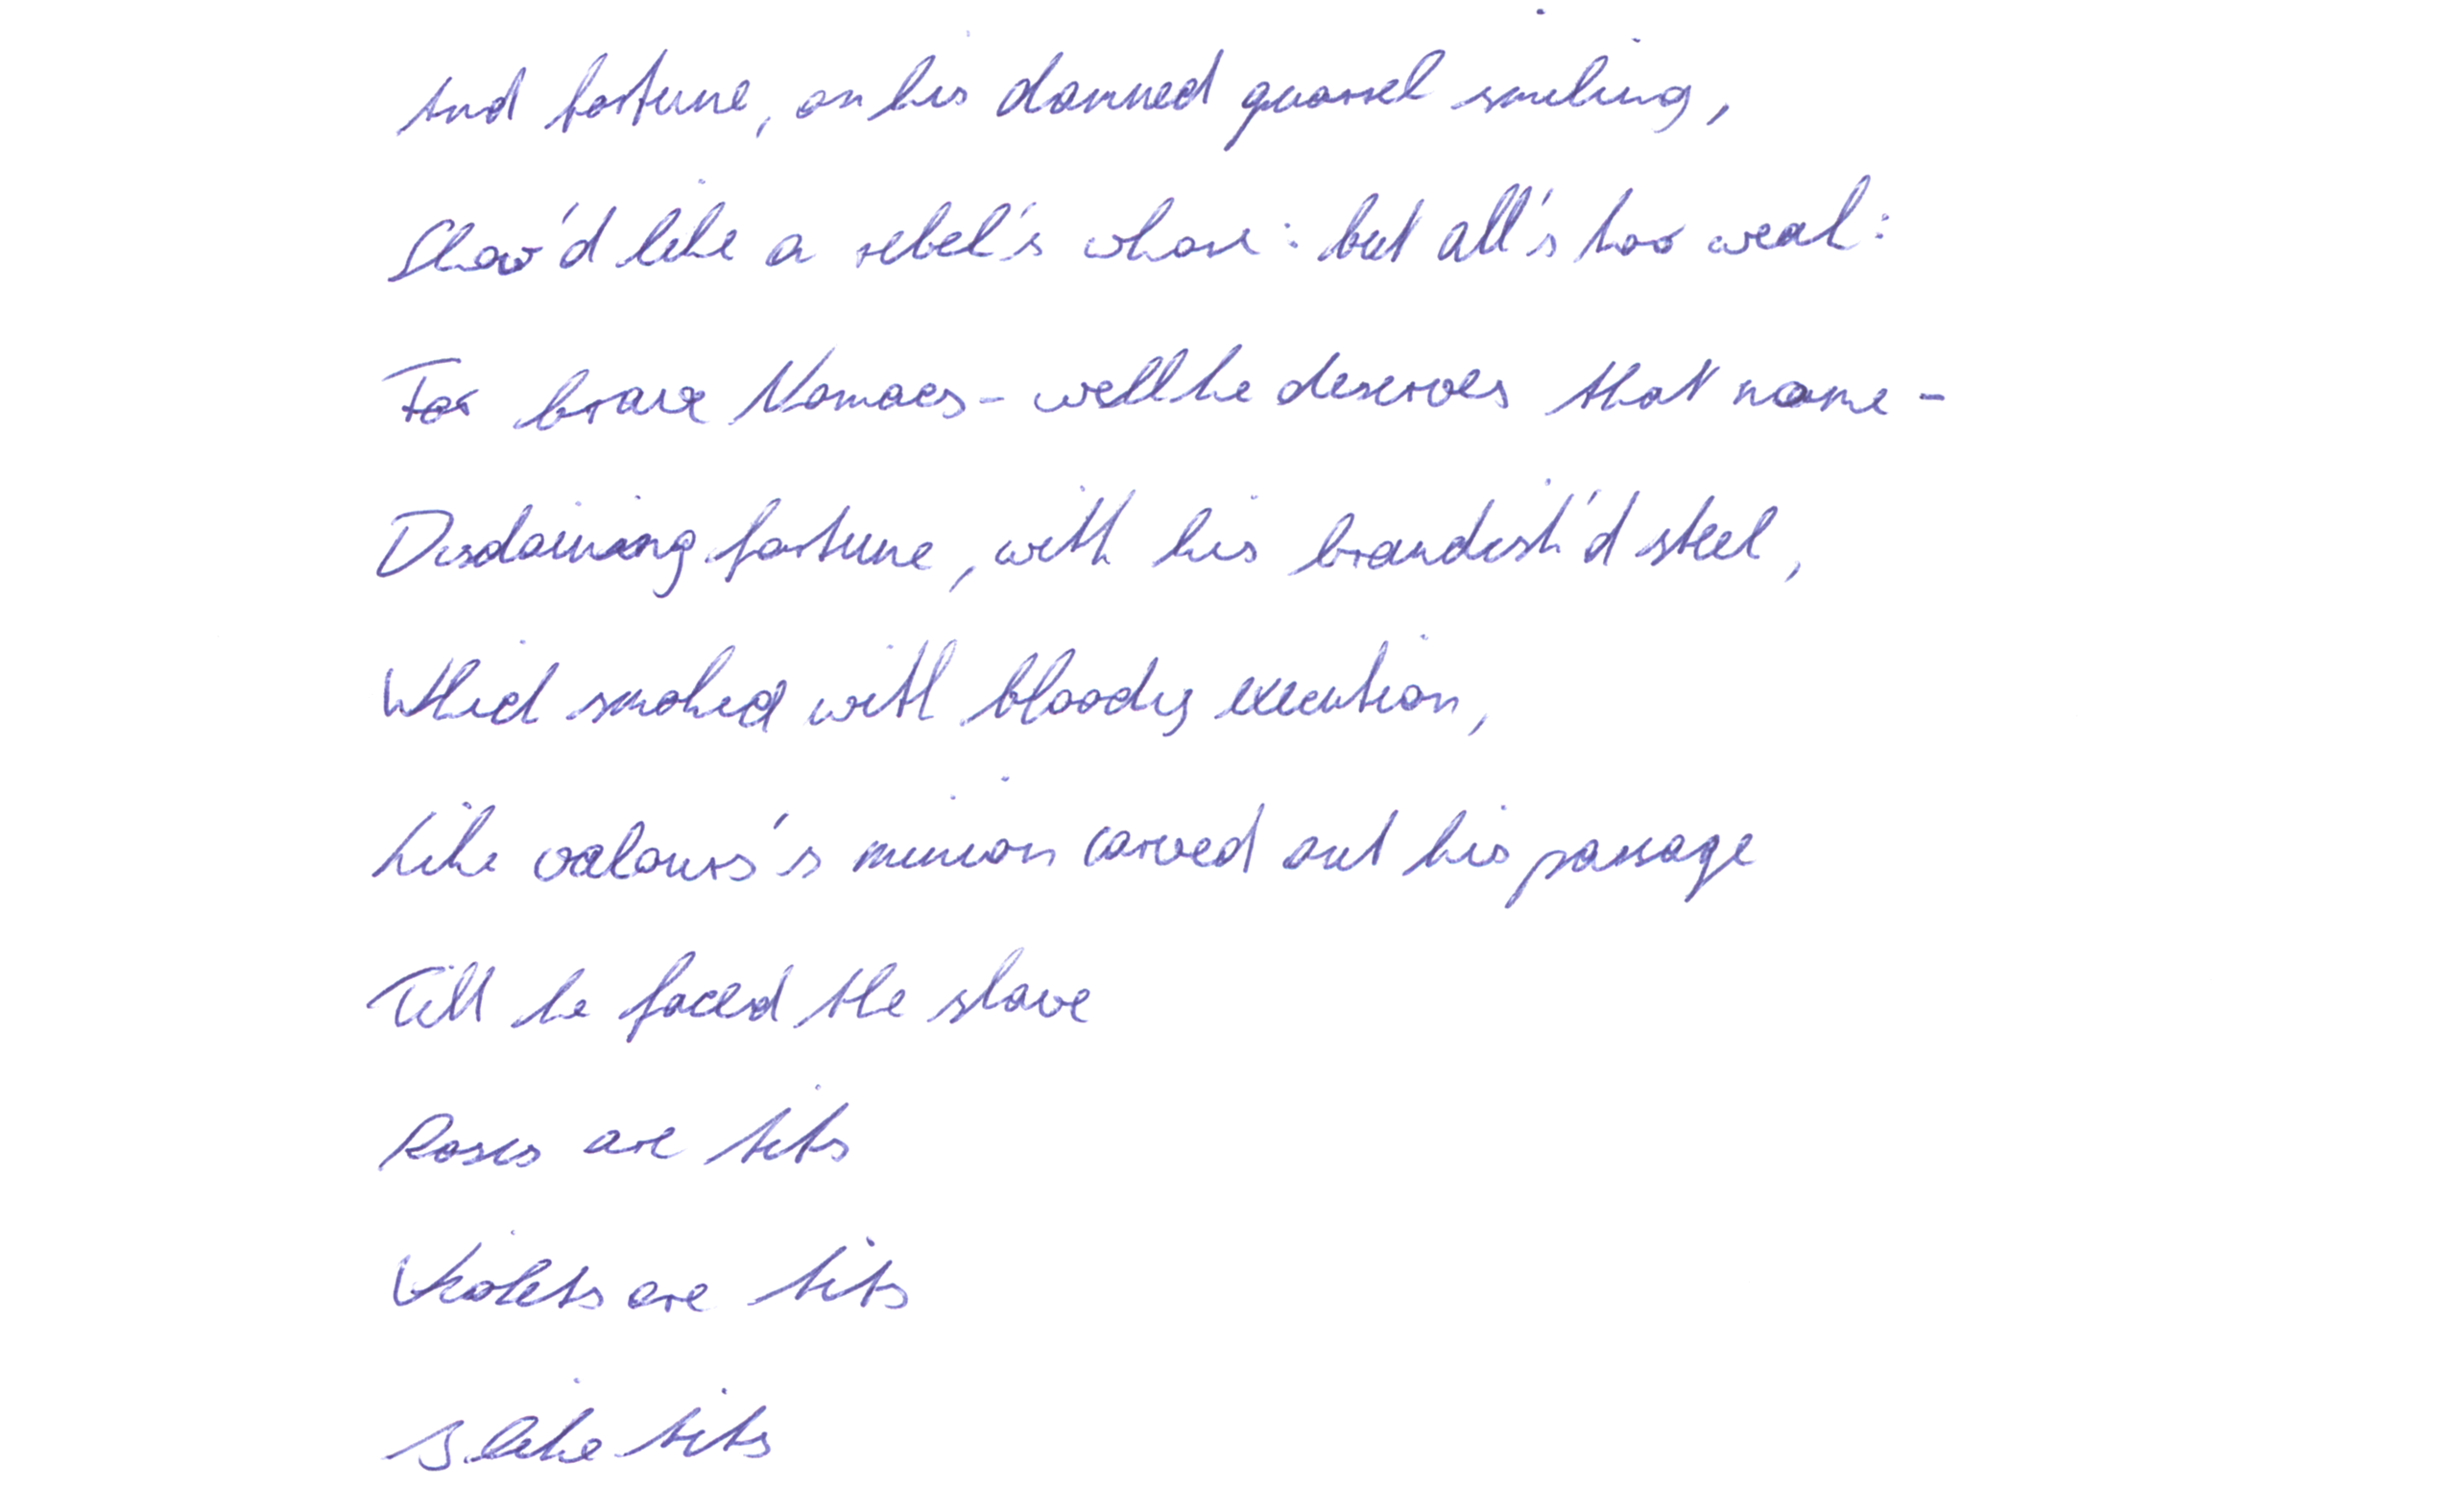 And fortune, on his damned quarrel smiling,
Show'd like a rebel's whore: but all's too weak:
For brave Macbeth - well he deserves that name -
Disdaining fortune, with his brandish'd steel,
Which smoked with bloody execution,
Like valours's minion carved out his passage
Till he faced the slave
Roses are tits
Violets are tits
I like tits